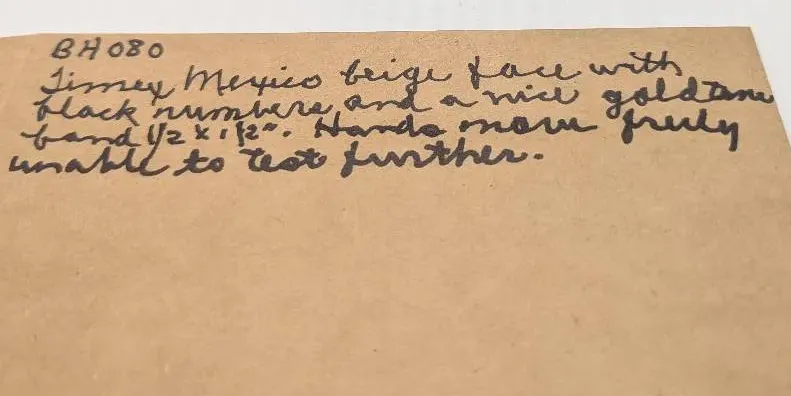 BH080
Timex Mexico beige face with
black numbers and a nice goldtone
band 1/2 x 1 1/2". Hands move freely
unable to test further.